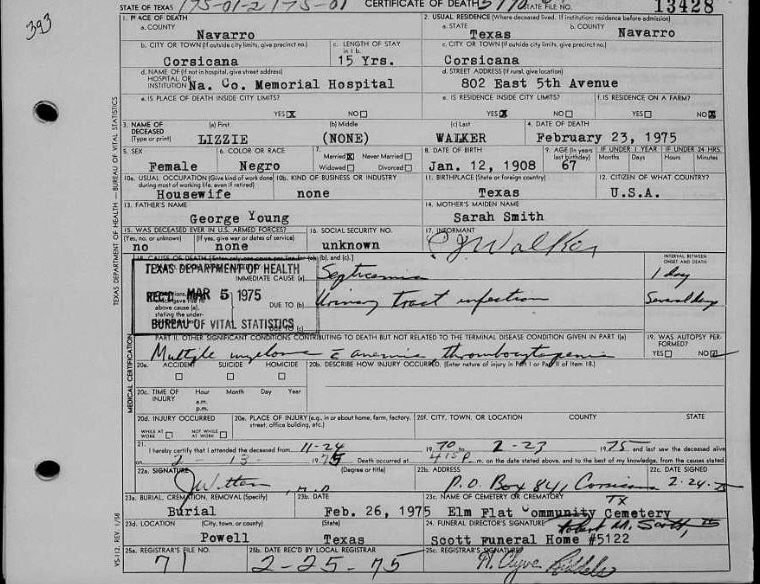 393
STATE OF TEXAS 175-01-2175-01 CERTIFICATE OF DEATH STATE FILE NO. 13428
1. PLACE OF DEATH 2. USUAL RESIDENCE (Where deceased lived. If institution: residence before admission)
a. COUNTY Navarro a. STATE Texas b. COUNTY Navarro
b. CITY OR TOWN (If outside city limits, give precinct no.) c. LENGTH OF STAY in 1 b. c. CITY OR TOWN (If outside city limits, give precinct no.)
Corsicana 15 Yrs. Corsicana
d. NAME OF (If not in hospital, give street address) HOSPITAL OR INSTITUTION Na. Co. Memorial Hospital d. STREET ADDRESS (If rural, give location) 802 East 5th Avenue
e. IS PLACE OF DEATH INSIDE CITY LIMITS? e. IS RESIDENCE INSIDE CITY LIMITS? f. IS RESIDENCE ON A FARM?
YES X NO YES X NO YES NO X
3. NAME OF DECEASED (Type or print) (a) First (b) Middle (c) Last 4. DATE OF DEATH
LIZZIE (NONE) WALKER February 23, 1975
5. SEX 6. COLOR OR RACE 7. Married X Never Married Widowed Divorced 8. DATE OF BIRTH 9. AGE (In years last birthday) IF UNDER 1 YEAR IF UNDER 24 HRS. Months Days Hours Minutes
Female Negro Jan. 12, 1908 67
10a. USUAL OCCUPATION (Give kind of work done during most of working life, even if retired) 10b. KIND OF BUSINESS OR INDUSTRY 11. BIRTHPLACE (State or foreign country) 12. CITIZEN OF WHAT COUNTRY?
Housewife none Texas U.S.A.
13. FATHER'S NAME 14. MOTHER'S MAIDEN NAME
George Young Sarah Smith
15. WAS DECEASED EVER IN U.S. ARMED FORCES? 16. SOCIAL SECURITY NO. 17. INFORMANT
(Yes, no, or unknown) (If yes, give war or dates of service)
no none unknown C J Walker
18. CAUSE OF DEATH (b), and (c). INTERVAL BETWEEN ONSET AND DEATH
TEXAS DEPARTMENT OF HEALTH
IMMEDIATE CAUSE (a) Septicemia 1 day
REC'D MAR 5 1975
above cause (a), stating the under- DUE TO (b) Urinary tract infection Several days
BUREAU OF VITAL STATISTICS
DUE TO (c)
PART II. OTHER SIGNIFICANT CONDITIONS CONTRIBUTING TO DEATH BUT NOT RELATED TO THE TERMINAL DISEASE CONDITION GIVEN IN PART I(a) 19. WAS AUTOPSY PERFORMED?
Multiple myeloma c anemia thrombocytopenia YES NO
20a. ACCIDENT SUICIDE HOMICIDE 20b. DESCRIBE HOW INJURY OCCURRED. (Enter nature of injury in Part I or Part II of Item 18.)
20c. TIME OF INJURY Hour Month Day Year
a.m.
p.m.
20d. INJURY OCCURRED 20e. PLACE OF INJURY (e.g., in or about home, farm, factory, street, office building, etc.) 20f. CITY, TOWN, OR LOCATION COUNTY STATE
WHILE AT WORK NOT WHILE AT WORK
21. I hereby certify that I attended the deceased from 11-24 1970 to 2-23 1975 and last saw the deceased alive
on 2-13- 1975 Death occurred at 415 P. m. on the date stated above, and to the best of my knowledge, from the causes stated.
22a. SIGNATURE (Degree or title) 22b. ADDRESS 22c. DATE SIGNED
M.D P.O. Box 841, Corsicana TX 2-24-75
23a. BURIAL, CREMATION, REMOVAL (Specify) 23b. DATE 23c. NAME OF CEMETERY OR CREMATORY
Burial Feb. 26, 1975 Elm Flat Community Cemetery
23d. LOCATION (City, town, or county) (State) 24. FUNERAL DIRECTOR'S SIGNATURE Robert M. Scott,
Powell Texas Scott Funeral Home #5122
25a. REGISTRAR'S FILE NO. 25b. DATE REC'D BY LOCAL REGISTRAR 25c. REGISTRAR'S SIGNATURE
71 2-25-75
TEXAS DEPARTMENT OF HEALTH — BUREAU OF VITAL STATISTICS
MEDICAL CERTIFICATION
VS-112, REV. 1/58